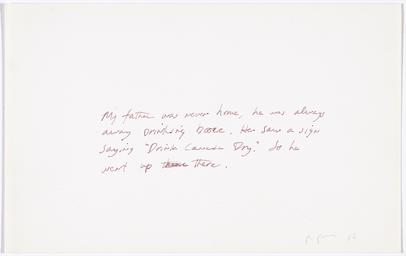 My father was never home, he was always
away Drinking booze. He saw a sign
saying "Drink Canada Dry." So he
went up there.